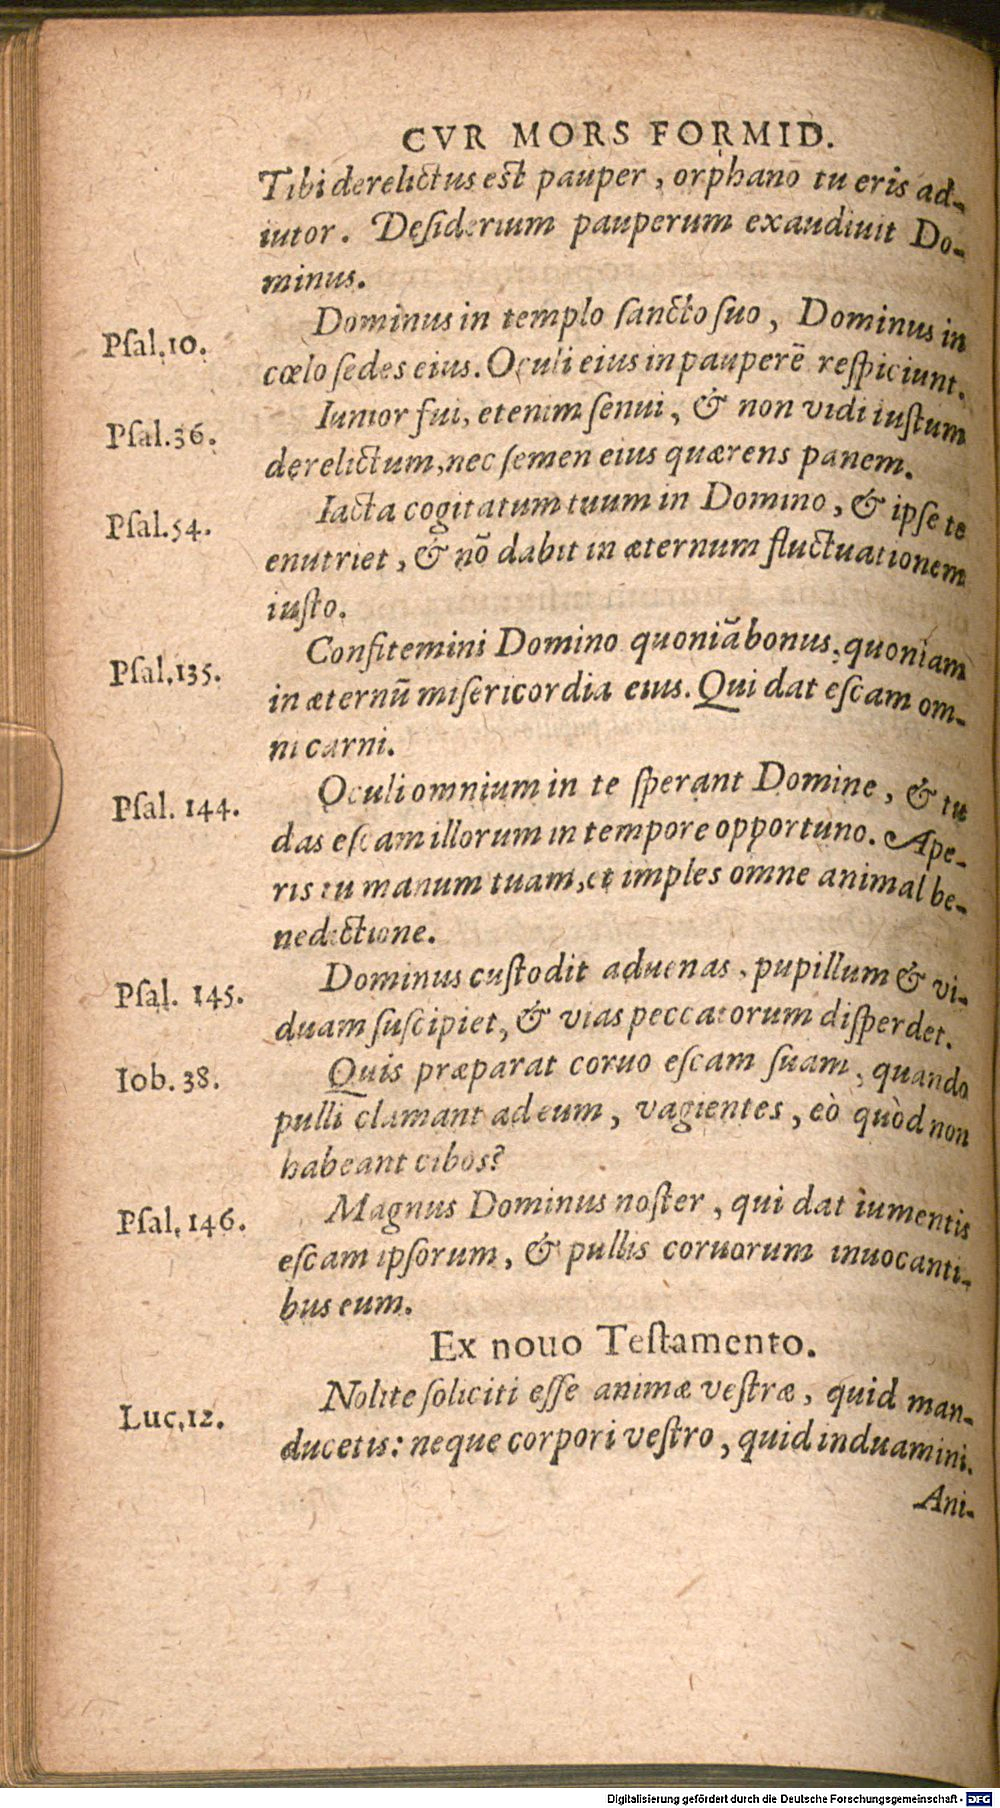 CVR MORS FORMID.
Tibi derelictus est pauper, orphano tu eris ad-
iutor. Desiderium pauperum exaudiuit Do-
minus.
Psal.10. Dominus in templo sancto suo, Dominus in
cœlo sedes eius. Oculi eius in pauperẽ respiciunt.
Psal.36. Iunior fui, etenim senui, & non vidi iustum
derelictum, nec semen eius quærens panem.
Psal.54. Iacta cogitatum tuum in Domino, & ipse te
enutriet, & nõ dabit in æternum fluctuationem
iusto.
Psal.135. Confitemini Domino quoniã bonus, quoniam
in æternũ misericordia eius. Qui dat escam om-
ni carni.
Psal. 144. Oculi omnium in te sperant Domine, & tu
das escam illorum in tempore opportuno. Ape-
ris tu manum tuam, et imples omne animal be-
nedictione.
Psal. 145. Dominus custodit aduenas, pupillum & vi-
duam suscipiet, & vias peccatorum disperdet.
Iob. 38. Quis præparat coruo escam suam, quando
pulli clamant ad eum, vagientes, eò quòd non
habeant cibos?
Psal. 146. Magnus Dominus noster, qui dat iumentis
escam ipsorum, & pullis coruorum inuocanti-
bus eum.
Ex nouo Testamento.
Luc.12. Nolite soliciti esse animæ vestræ, quid man-
ducetis: neque corpori vestro, quid induamini.
Ani-
Digitalisierung gefördert durch die Deutsche Forschungsgemeinschaft - DFG